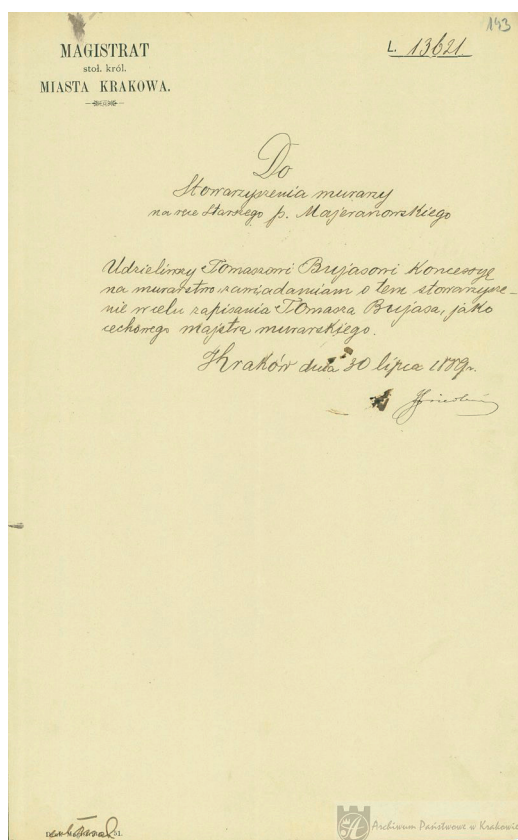 143
MAGISTRAT
stoł. król.
MIASTA KRAKOWA.
L. 13621.
Do
Stowarzyszenia murarzy
na ręce Starszego p. Majeranowskiego
Udzieliwszy Tomaszowi Bujasowi Koncesyę
na murarstwo, zawiadamiam o tem stowarzysze-
nie w celu zapisania Tomasza Bujasa, jako
cechowego majstra murarskiego.
Kraków dnia 30 lipca 1889r.
Archiwum Państwowe w Krakowie